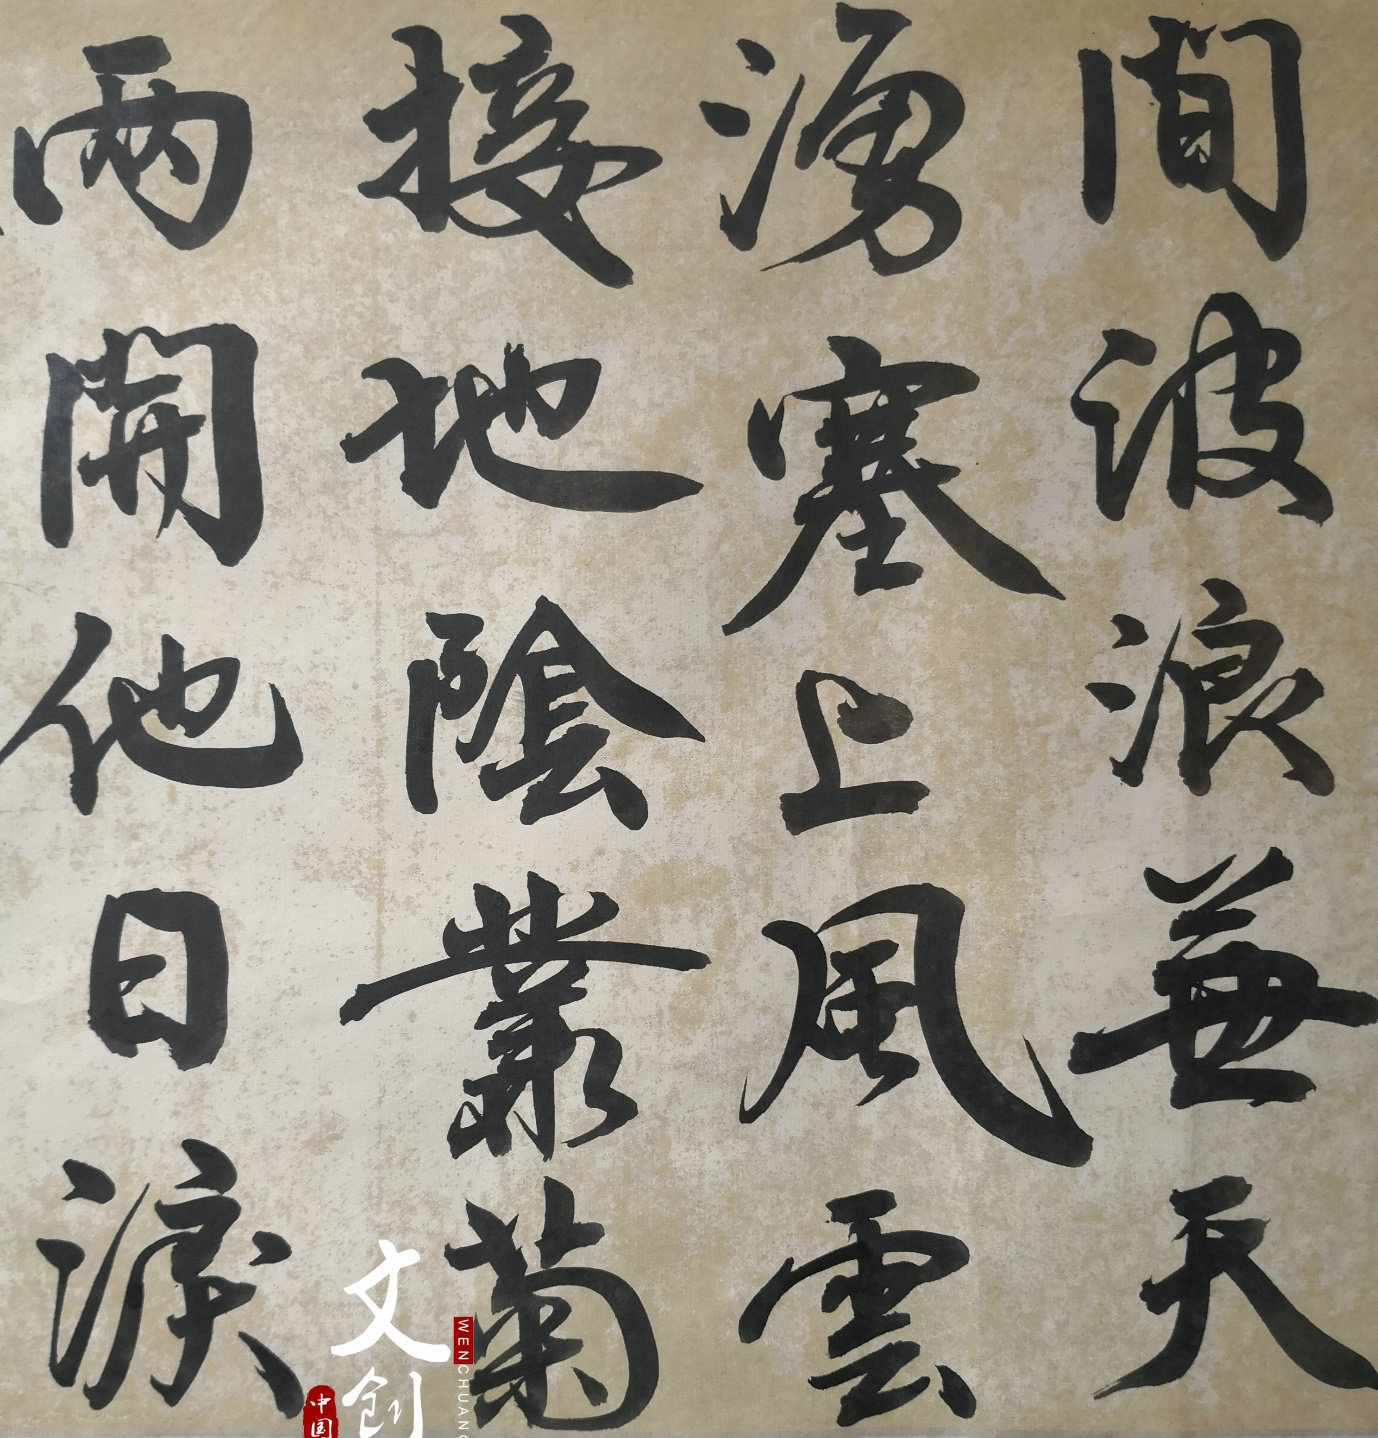 間波浪兼天
湧塞上風雲
接地陰叢菊
兩開他日淚
文创
WENCHUANG
中国